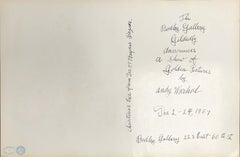 The
Bodley Gallery
Gildedly
announces
A Show of
Golden Pictures
by
Andy Warhol
Dec 2 - 24, 1957
Bodley Gallery 223 East 60th St